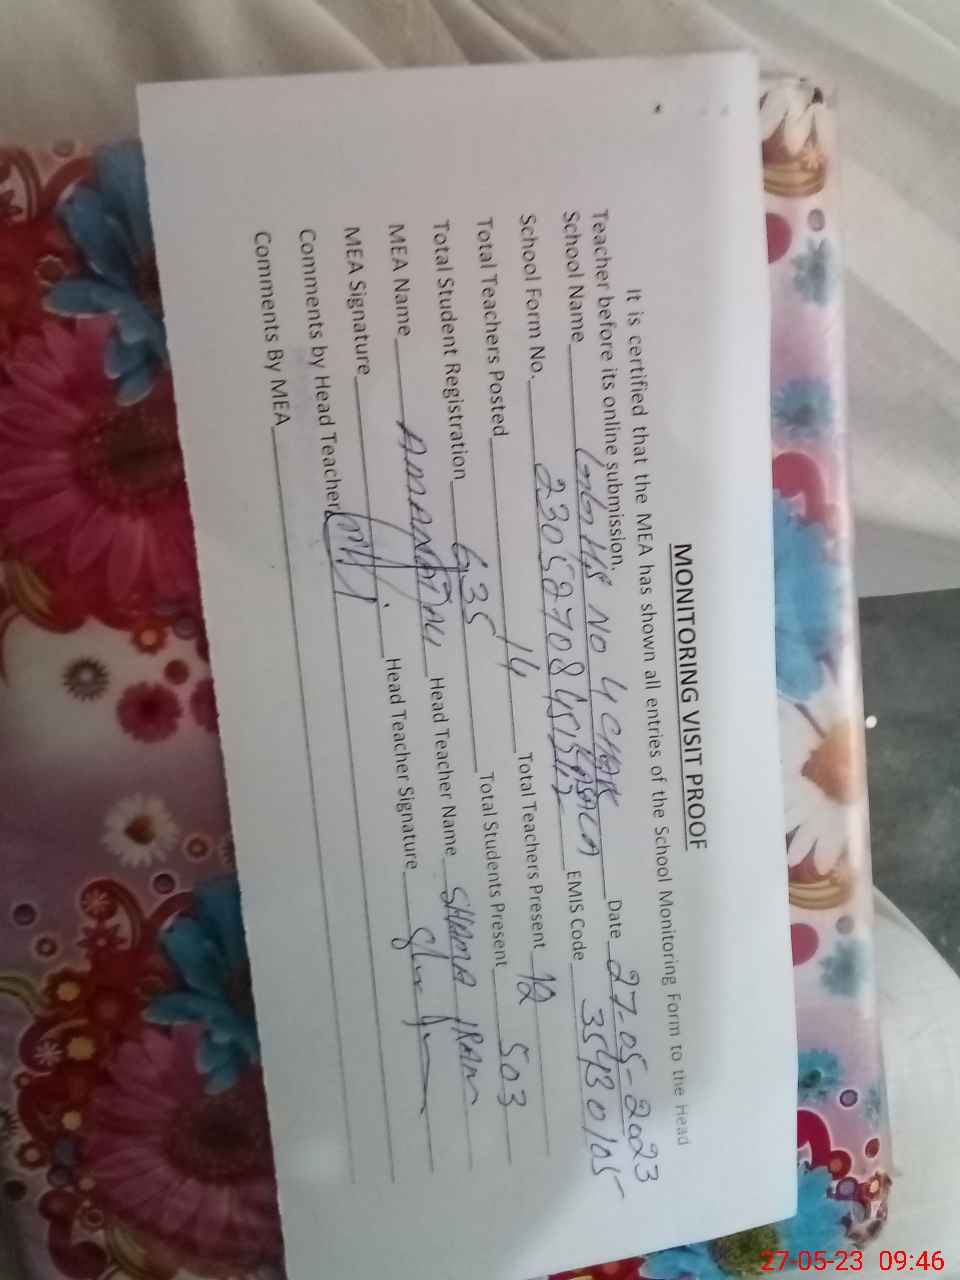 MONITORING VISIT PROOF
It is certified that the MEA has shown all entries of the School Monitoring Form to the Head
Teacher before its online submission.
School Name NO 4 CHAK Date 27-05-2023
School Form No. EMIS Code 35430105
Total Teachers Posted 14 Total Teachers Present 12
Total Student Registration 635 Total Students Present 503
MEA Name Head Teacher Name SHAMA IRAM
MEA Signature Head Teacher Signature
Comments by Head Teacher
Comments By MEA
27-05-23 09:46